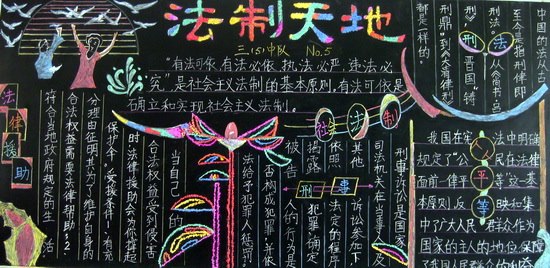 法制天地
三.(5)中队 No.5
"有法可依,有法必依,执法必严,违法必
究",是社会主义法制的基本原则,有法可依是
确立和实现社会主义法制。
法律援助
符合当地政府规定的生活
合法权益需要法律帮助;2
分理由证明其为了维护自身的
保护伞!受援条件:1.有充
时法律援助会为你撑起
合法权益受到侵害
当自己的
法给予犯罪人惩罚
否构成犯罪并依
人的行为是
被告
揭露犯罪,确定
依照法定的程序
其他诉讼参加下
司法机关在当事人及
刑事诉讼是国家
社会法制
刑事
我国在宪法中明确
规定了"公人民在法律
面前一律平等"这一基
本原则反映和集
中了广大人民群众作为
国家的主人的地位,保障
了我国人民群众的利益
平等
中国的
至今是指刑律即
刑法。从《尚书
刑》"晋国"铸
刑鼎"到
都是一样的。
刑法